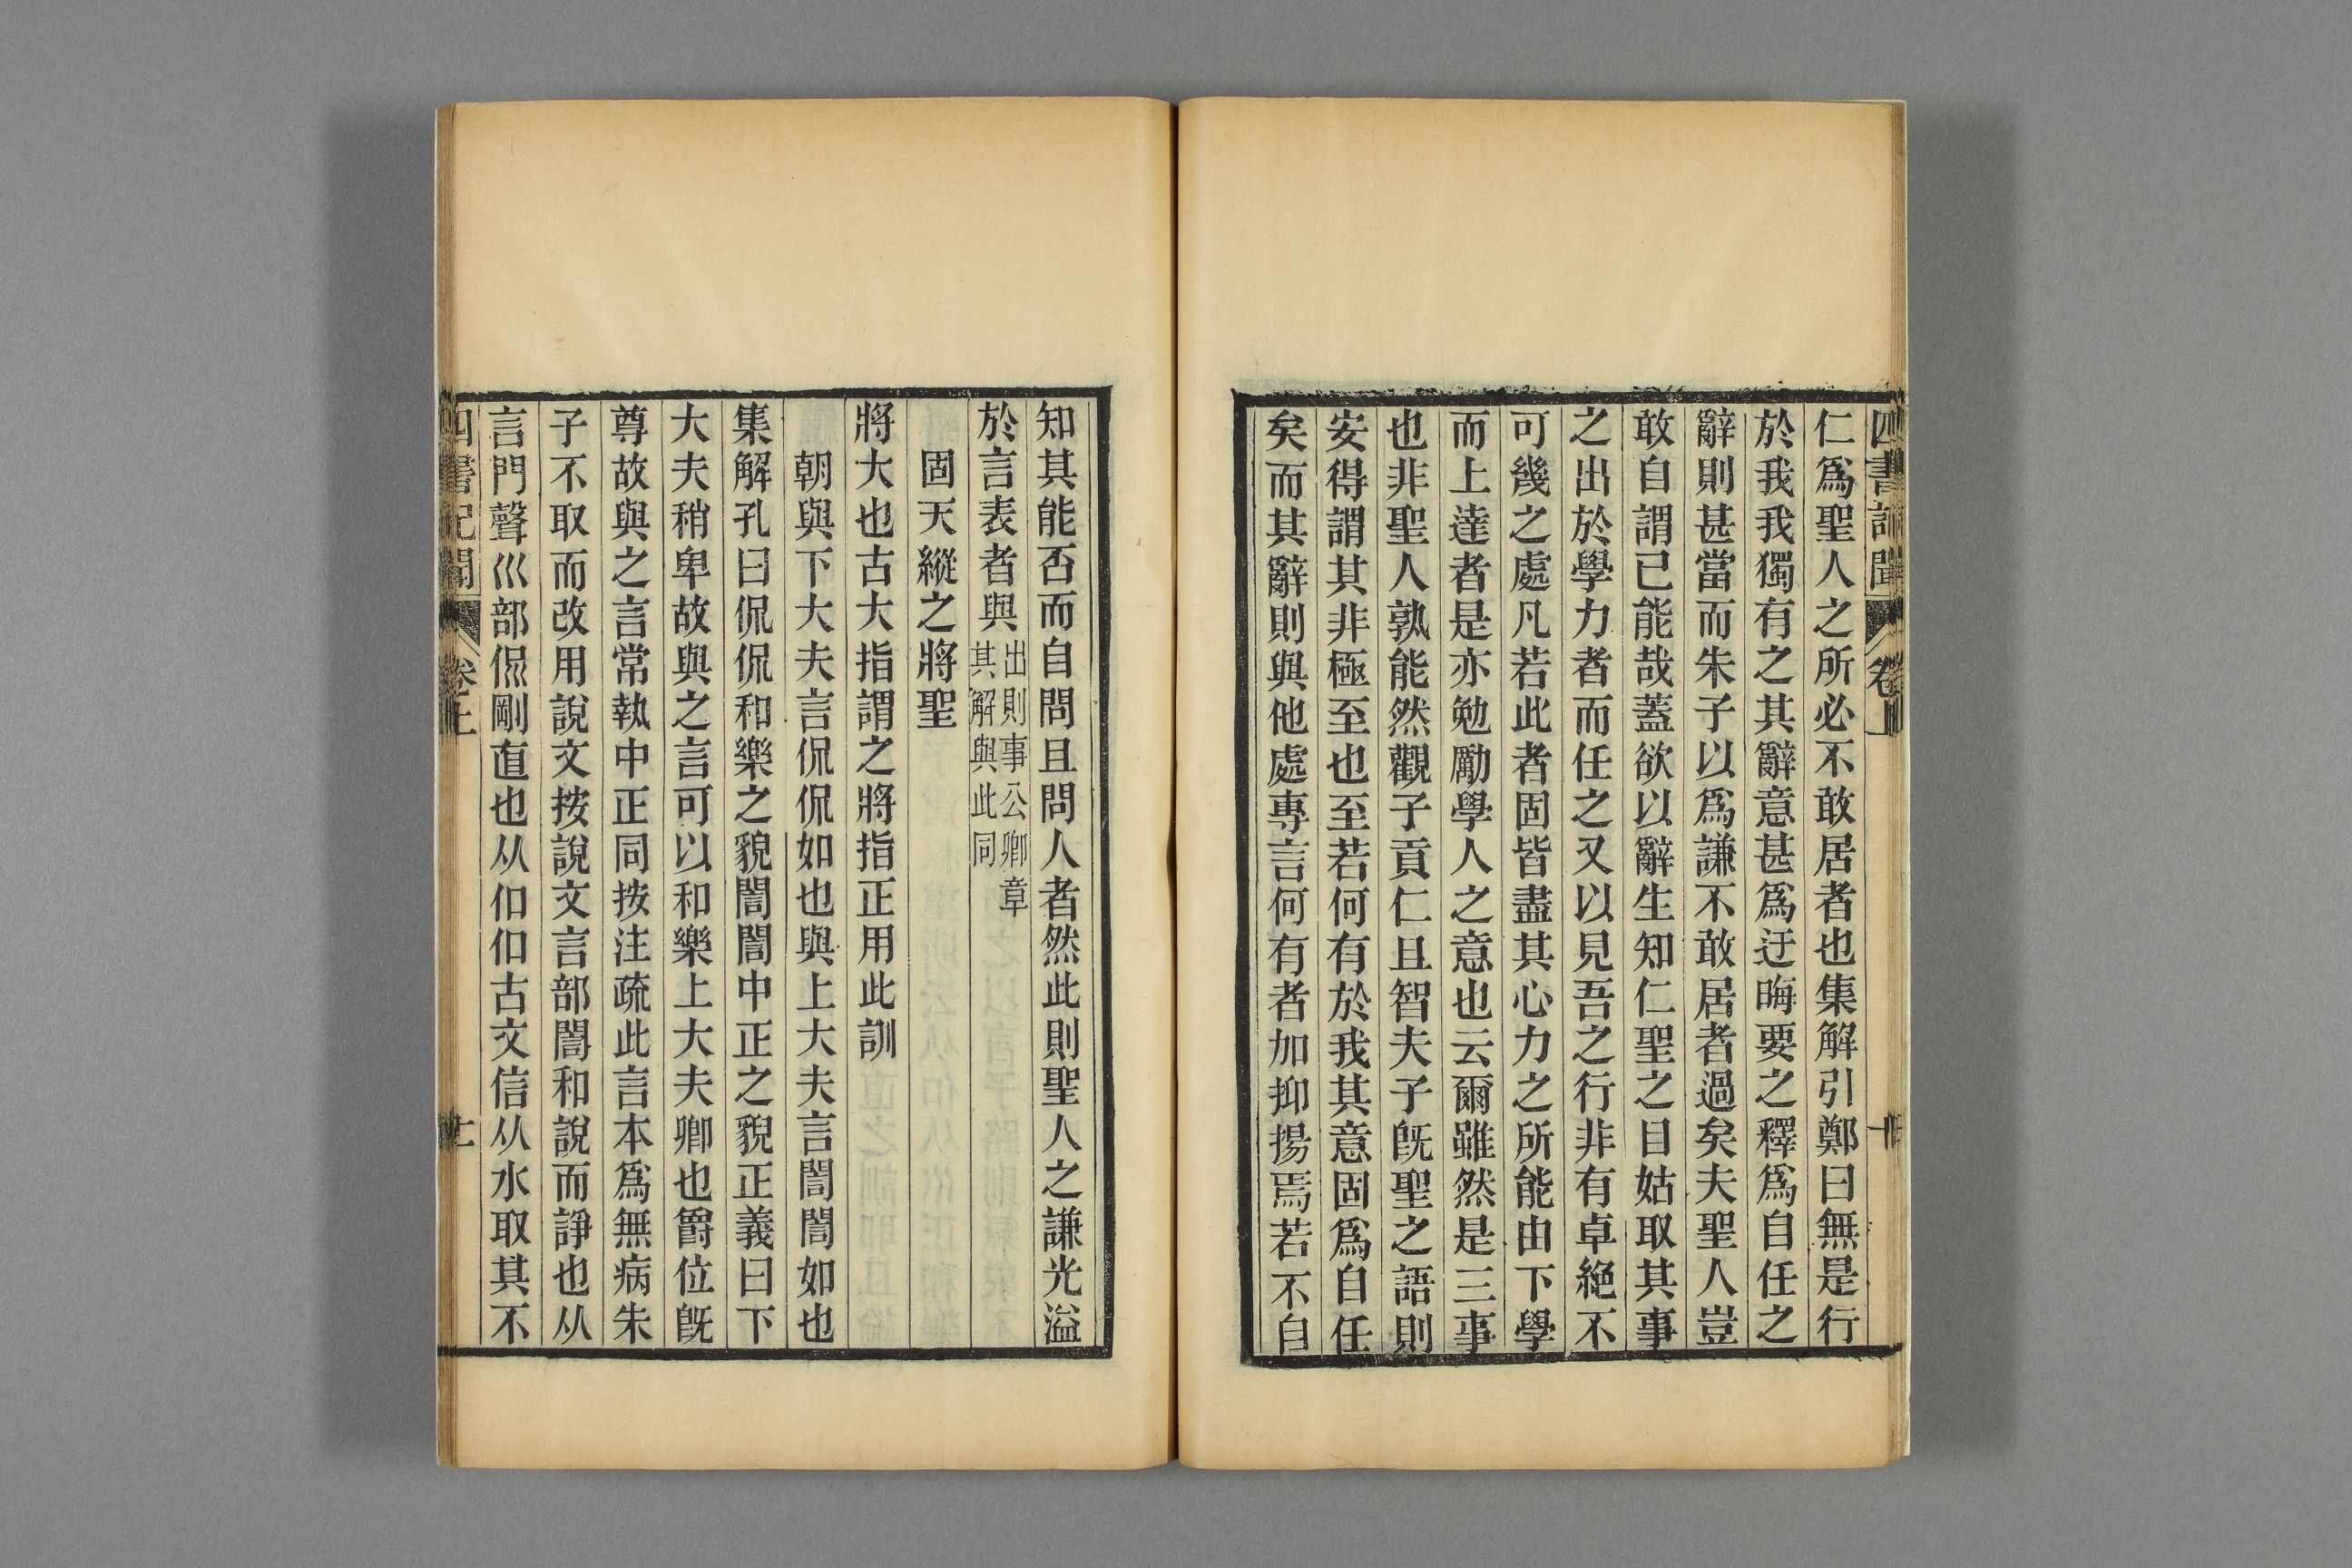 四書記聞 卷上
仁爲聖人之所必不敢居者也集解引鄭曰無是行
於我我獨有之其辭意甚爲迂晦要之釋爲自任之
辭則甚當而朱子以爲謙不敢居者過矣夫聖人豈
敢自謂己能哉蓋欲以辭生知仁聖之目姑取其事
之出於學力者而任之又以見吾之行非有卓絶不
可幾之處凡若此者固皆盡其心力之所能由下學
而上達者是亦勉勵學人之意也云爾雖然是三事
也非聖人孰能然觀子貢仁且智夫子旣聖之語則
安得謂其非極至也至若何有於我其意固爲自任
矣而其辭則與他處專言何有者加抑揚焉若不自
知其能否而自問且問人者然此則聖人之謙光溢
於言表者與出則事公卿章其解與此同
固天縱之將聖
將大也古大指謂之將指正用此訓
朝與下大夫言侃侃如也與上大夫言誾誾如也
集解孔曰侃侃和樂之貌誾誾中正之貌正義曰下
大夫稍卑故與之言可以和樂上大夫卿也爵位旣
尊故與之言常執中正同按注疏此言本爲無病朱
子不取而改用說文按說文言部誾和說而諍也从
言門聲巛部侃剛直也从㐰㐰古文信从水取其不
四書記聞 卷上